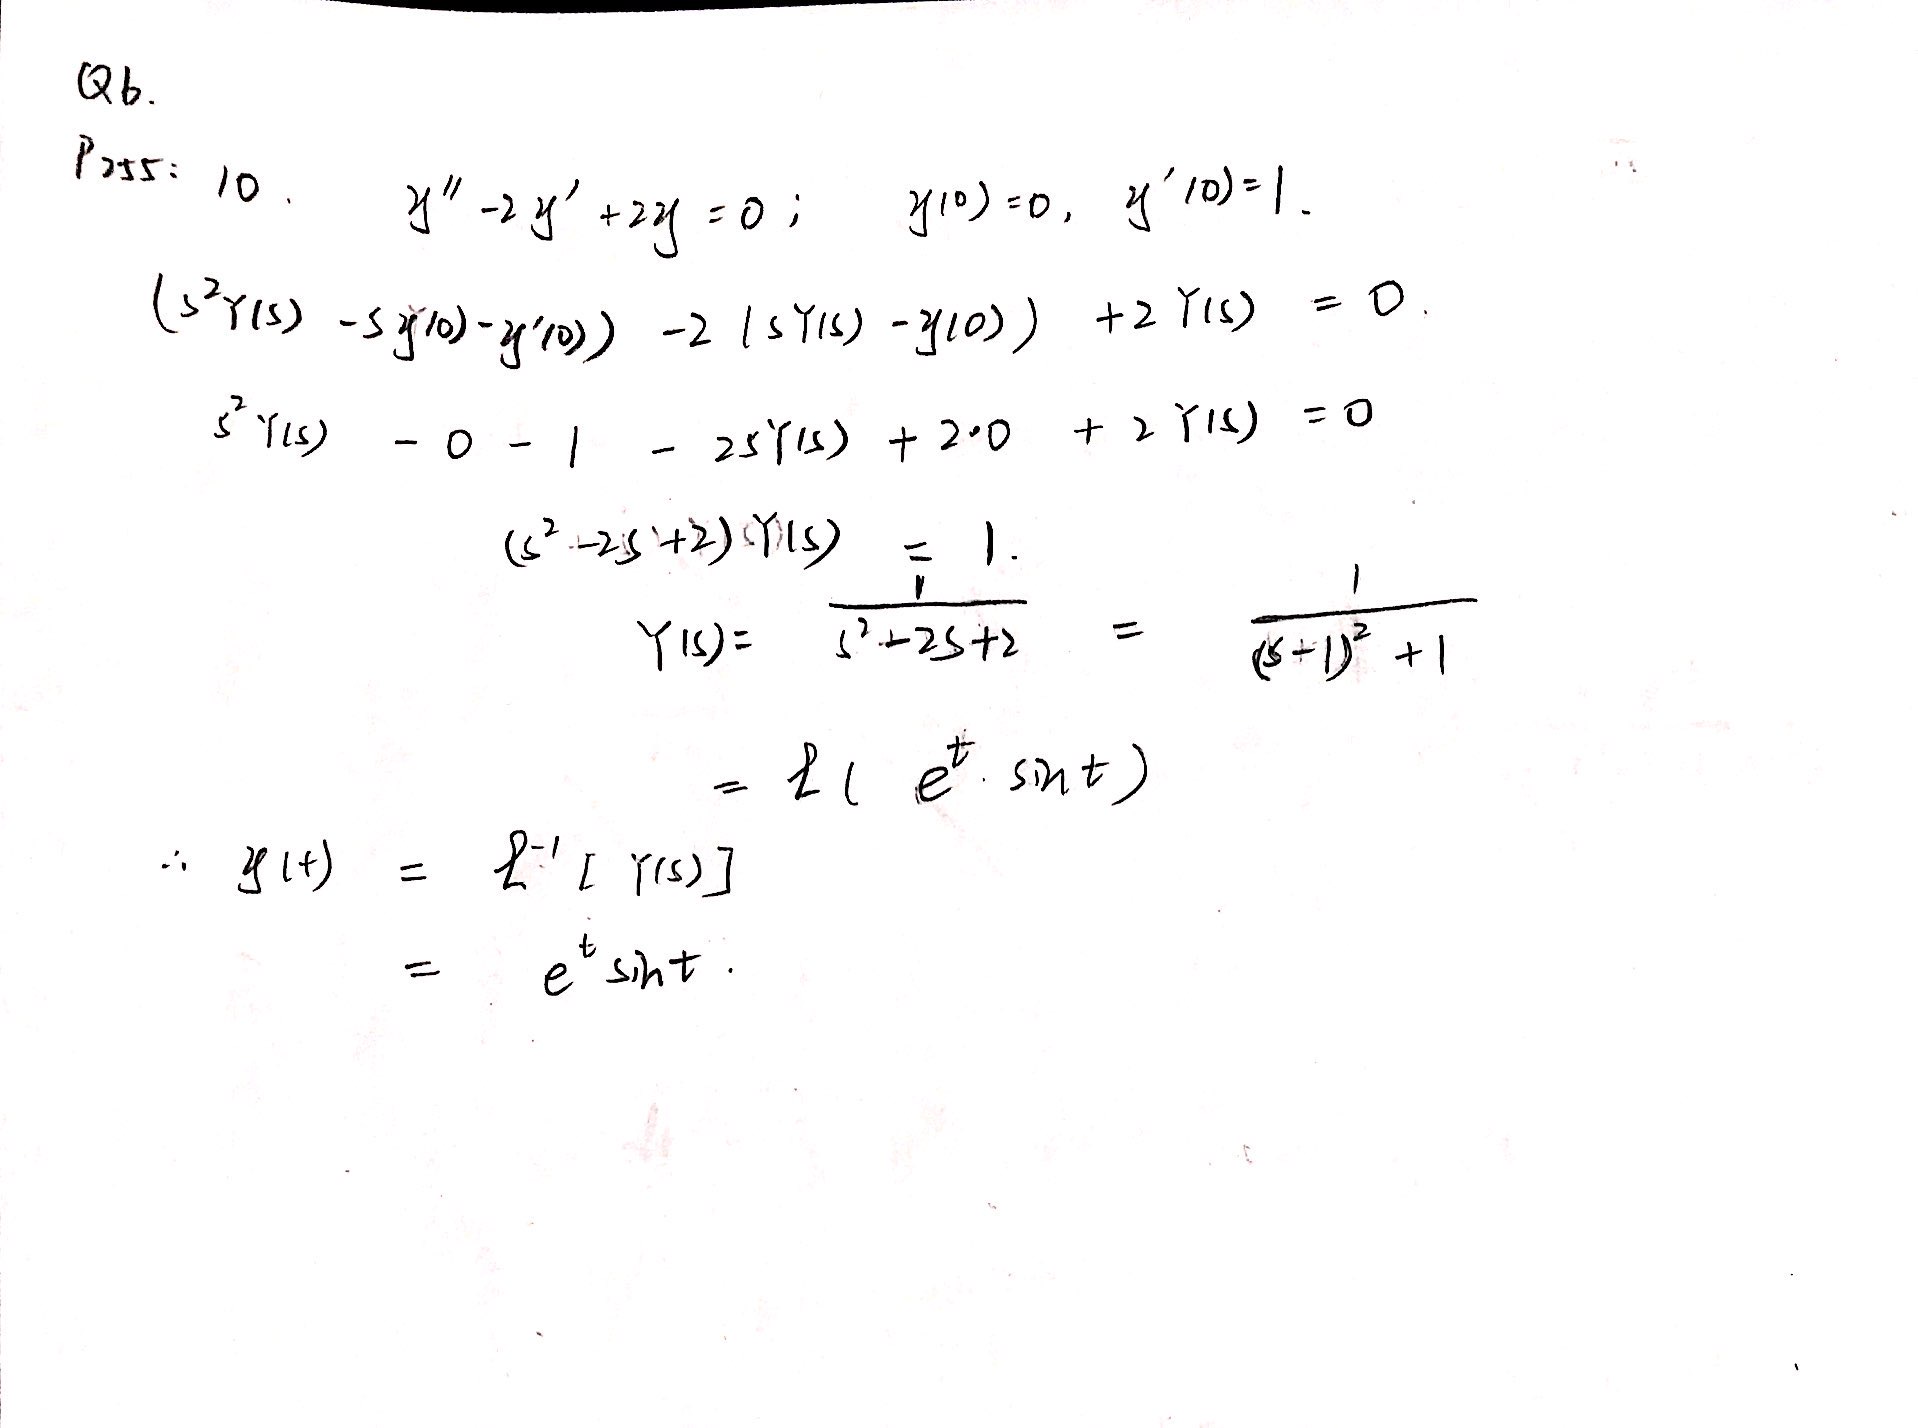 Q6.
P255: 10. y'' -2y' +2y = 0; y(0) = 0, y'(0) = 1.
(s²Y(s) - sy(0) - y'(0)) - 2(sY(s) - y(0)) + 2Y(s) = 0.
s²Y(s) - 0 - 1 - 2sY(s) + 2·0 + 2Y(s) = 0
(s² - 2s + 2)Y(s) = 1.
Y(s) = 1/(s² - 2s + 2) = 1/((s - 1)² + 1)
= ℒ(e^t · sint)
∴ y(t) = ℒ⁻¹[Y(s)]
= e^t sint.